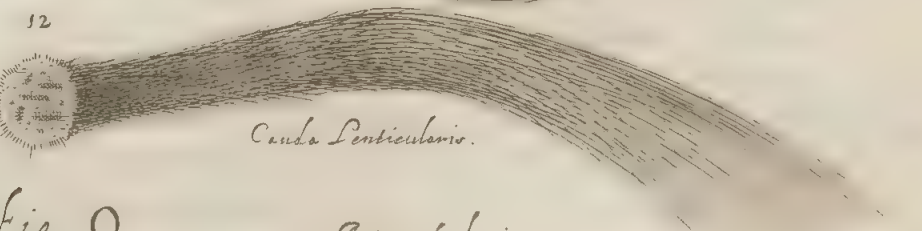 12
Cauda Lenticularis.
Fig. Q